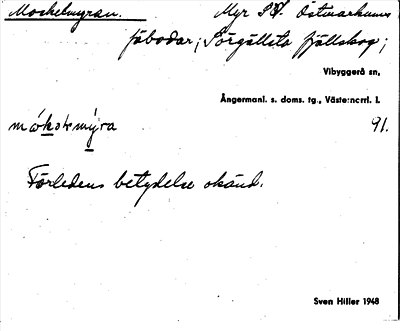 Mockelmyran. Myr SV. Östmarkums
fäbodar; Sörgällsta fjällskog;
Vibyggerå sn,
Ångermanl. s. doms. tg., Väster­norrl. l.
91.
Förledens betydelse okänd.
Sven Hiller 1948